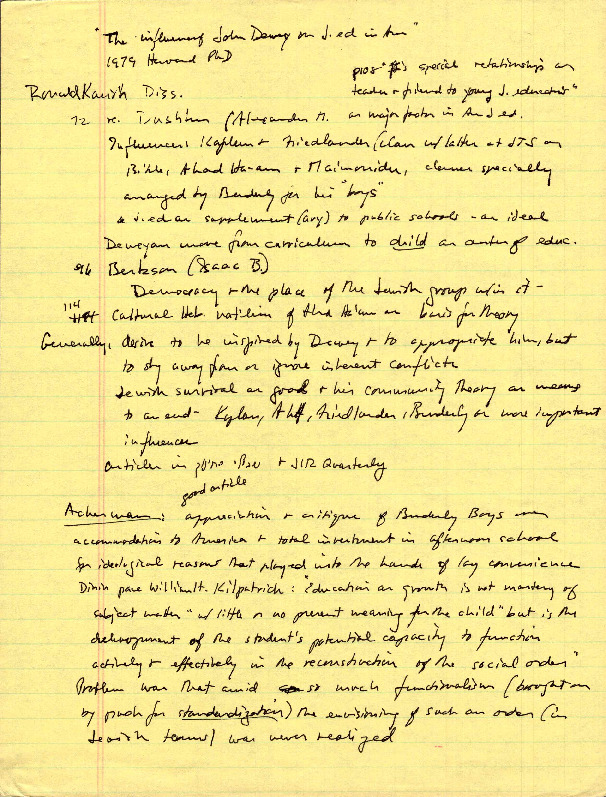 "The influence of John Dewey on J. ed in Am"
1979 Harvard PhD
"special relationship as
Ronald Kronish Diss. teacher + friend to young J. educators"
72 re. Dushkin (Alexander M. as major factor in Am J ed.
Influences: Kaplan + Friedlander (class w/ latter at JTS on
Bible, Ahad Ha-am + Maimonides, classes specially
arranged by Benderly for his "boys"
J. ed as supplement (ary) to public schools - an ideal
Deweyan move from curriculum to child as center of educ.
96 Berkson (Isaac B.)
Democracy + the place of the Jewish group w/in it -
114 Cultural Heb. notion of Ahad Ha'am as basis for theory
Generally, desire to be inspired by Dewey + to appropriate him, but
to shy away from or ignore inherent conflicts
Jewish survival as good + his community theory as means
to an end - Kaplan, AH, Friedlander, Benderly as more important
influences
articles in + Quarterly
good article
Ackerman: appreciation + critique of Benderly Boys
accommodation to America + total investment in afternoon school
for ideological reasons that played into the hands of lay convenience
pace William H. Kilpatrick: "Education as growth is not mastery of
subject matter" w/ little or no present meaning for the child" but is the
development of the student's potential capacity to function
actively + effectively in the reconstruction of the social order"
Problem was that amid so much functionalism (brought on
by push for standardization) the envisioning of such an order (in
Jewish terms) was never realized